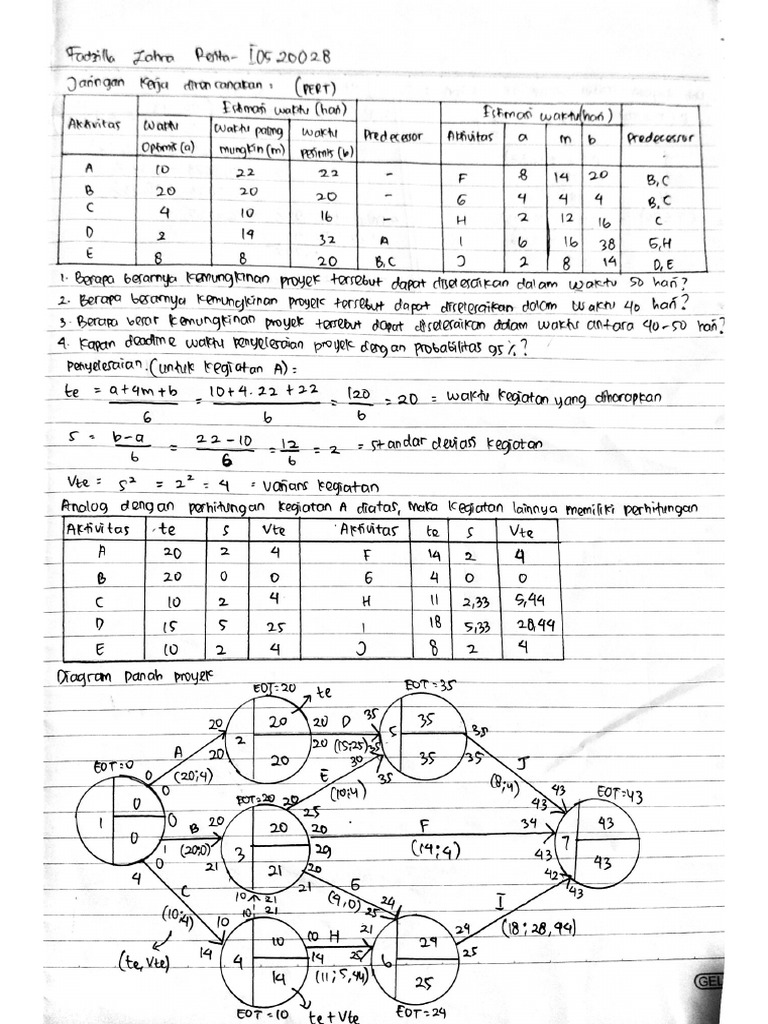 Fadzilla Zahra Pesta - I0520028
Jaringan kerja direncanakan : (PERT)
Aktivitas Estimasi waktu (hari) Predecessor Aktivitas Estimasi waktu (hari) Predecessor
Waktu Optimis (a) Waktu paling mungkin (m) Waktu pesimis (b) a m b
A 10 22 22 - F 8 14 20 B,C
B 20 20 20 - G 4 4 4 B,C
C 4 10 16 - H 2 12 16 C
D 2 14 32 A I 6 16 38 G,H
E 8 8 20 B,C J 2 8 14 D,E
1. Berapa besarnya kemungkinan proyek tersebut dapat diselesaikan dalam waktu 50 hari?
2. Berapa besarnya kemungkinan proyek tersebut dapat diselesaikan dalam waktu 40 hari?
3. Berapa besar kemungkinan proyek tersebut dapat diselesaikan dalam waktu antara 40-50 hari?
4. Kapan deadline waktu penyelesaian proyek dengan probabilitas 95%?
Penyelesaian. (untuk kegiatan A) :
te = a+4m+b / 6 = 10+4.22+22 / 6 = 120 / 6 = 20 = waktu kegiatan yang diharapkan
S = b-a / 6 = 22-10 / 6 = 12 / 6 = 2 = standar deviasi kegiatan
Vte = S² = 2² = 4 = varians kegiatan
Analog dengan perhitungan kegiatan A diatas, maka kegiatan lainnya memiliki perhitungan
Aktivitas te S Vte Aktivitas te S Vte
A 20 2 4 F 14 2 4
B 20 0 0 G 4 0 0
C 10 2 4 H 11 2,33 5,44
D 15 5 25 I 18 5,33 28,44
E 10 2 4 J 8 2 4
Diagram panah proyek
EOT=20 te EOT=35
20 20 20 D 35 5 35 35
2 20 (15;25) 35
A 20 20 30 35 35 35 J
EOT=0 0 (20;4) E 35 (8;4) 43 EOT=43
0 0 EOT=20 20 (10;4) 43
1 0 B 20 25 F 34 43
0 (20;0) 3 20 20 (14;4) 7
0 21 21 29 43 43
4 C 20 G 24 42 43
(10;4) 10 21 21 (4,0) 25 I
10 10 H 21 24 (18;28,44)
(te,Vte) 14 4 14 25 6 29 25
14 (11;5,44) 25
EOT=10 te+Vte EOT=24
GEL